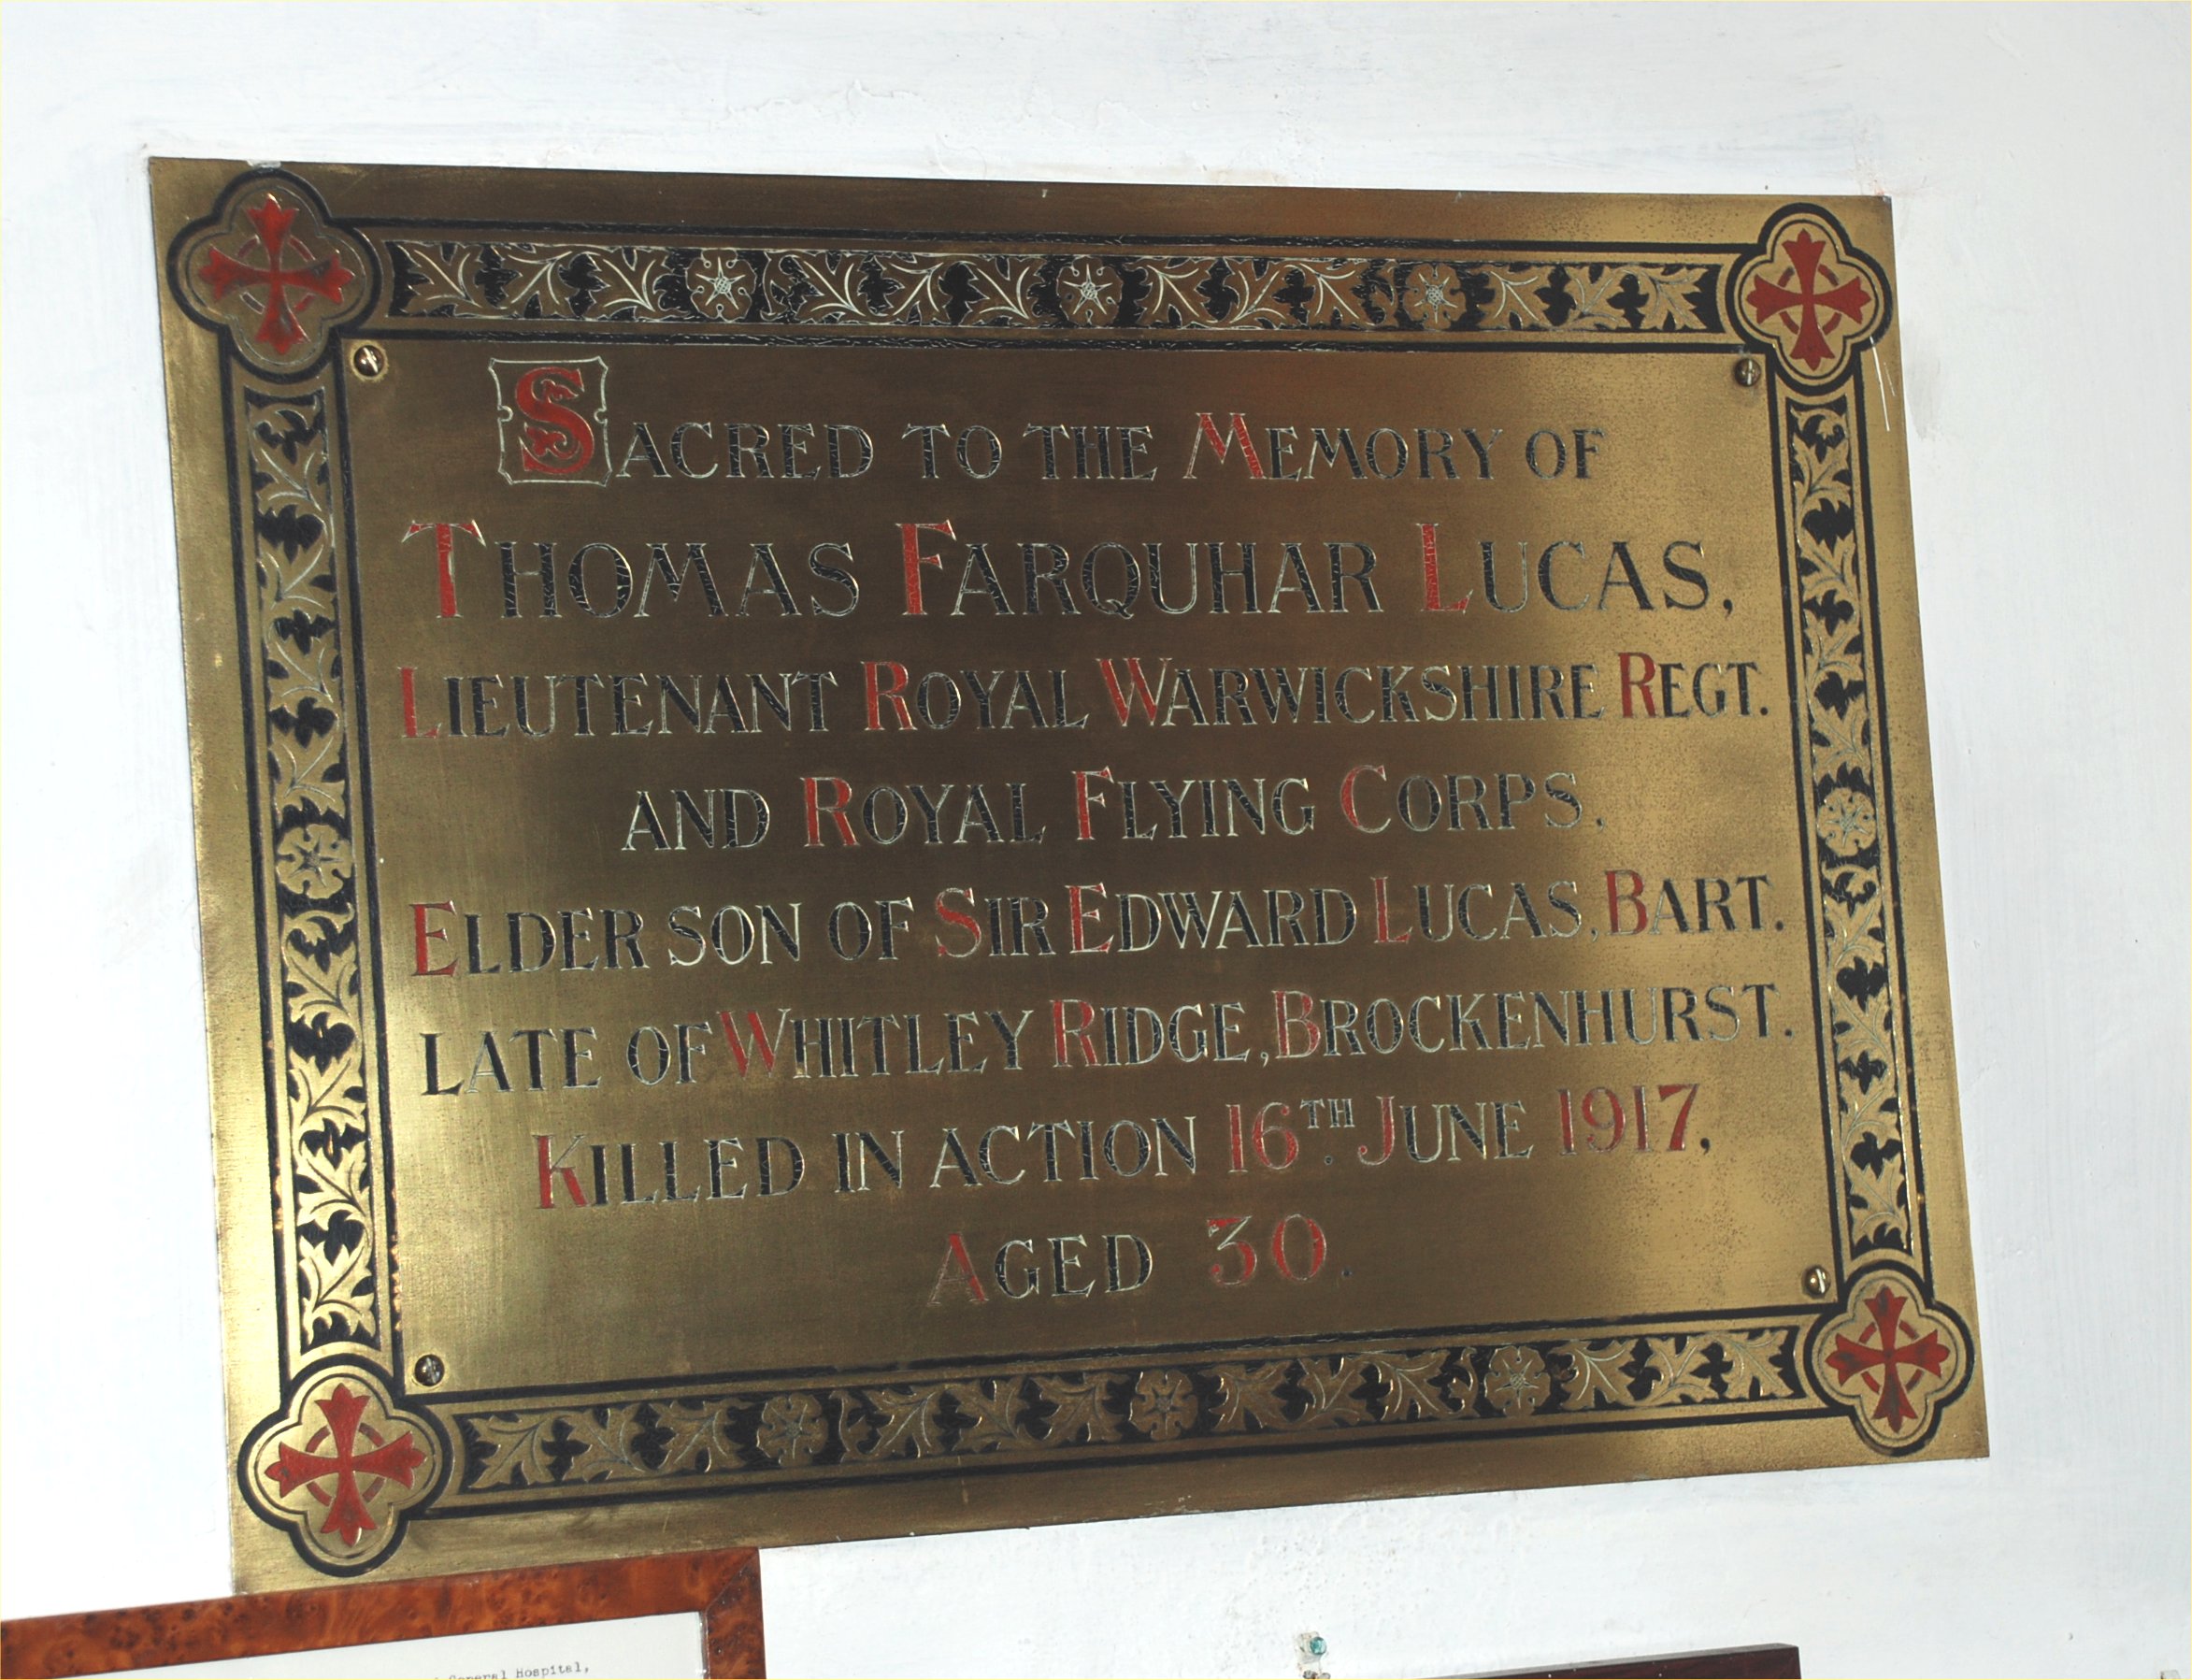 SACRED TO THE MEMORY OF
THOMAS FARQUHAR LUCAS,
LIEUTENANT ROYAL WARWICKSHIRE REGT.
AND ROYAL FLYING CORPS,
ELDER SON OF SIR EDWARD LUCAS, BART.
LATE OF WHITLEY RIDGE, BROCKENHURST.
KILLED IN ACTION 16TH. JUNE 1917,
AGED 30.
General Hospital,